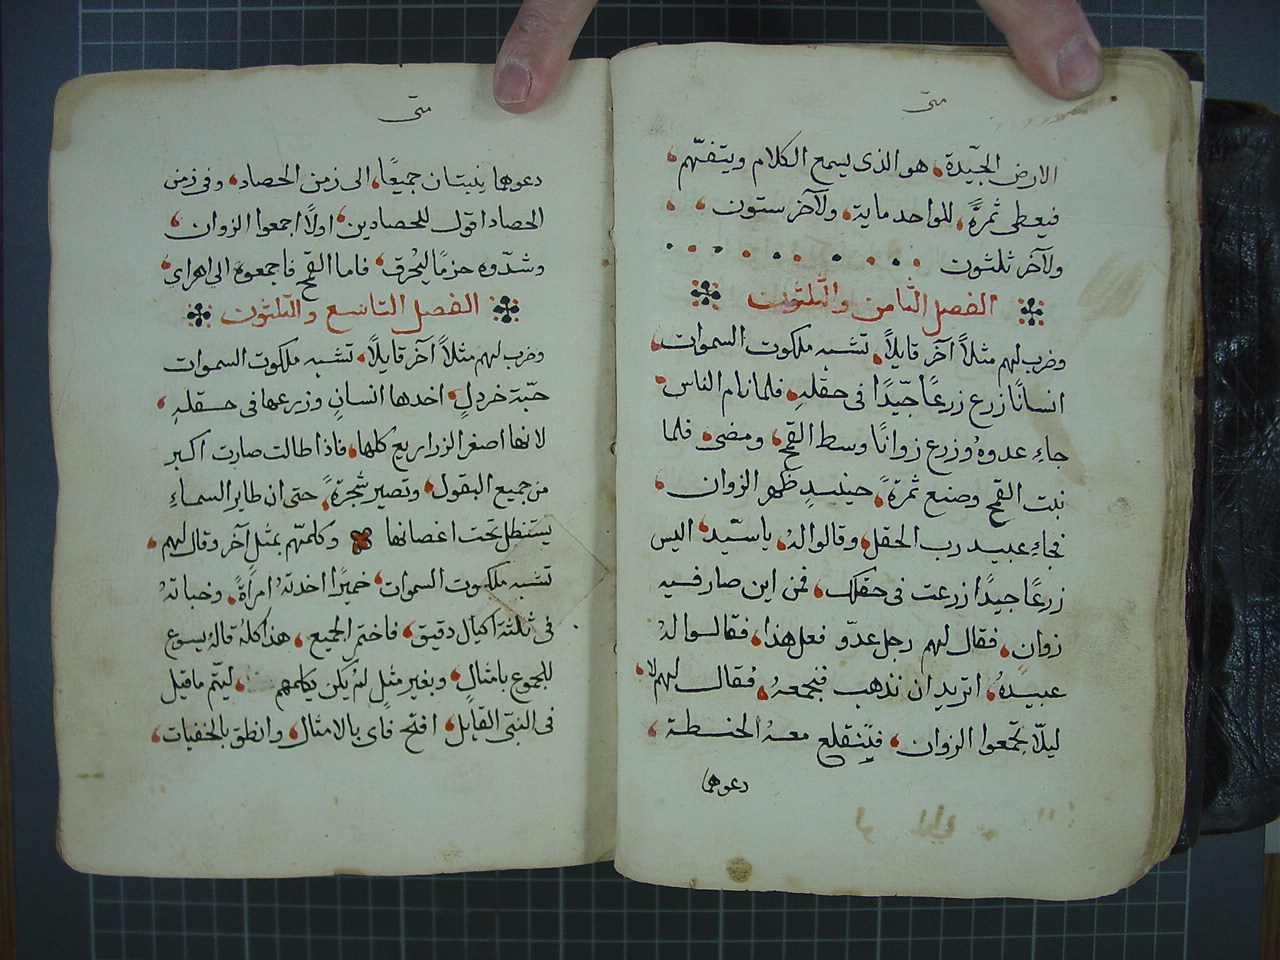 متى
الارض الجيّدة، هو الذى يسمع الكلام ويتفهّم،
فيعطى ثمرةً، للواحد ماية، ولآخر ستون،
ولآخر ثلثون
الفصل الثامن والثلثون
وضرب لهم مثلاً آخر قايلاً، تشبه ملكوت السموات،
انسانًا زرع زرعًا جيّدًا فى حقله، فلما نام الناس،
جاء عدوهُ وزرع زوانًا وسط القمح، ومضى، فلما
نبت القمح وصنع ثمرةً، حينيدٍ ظهر الزوان،
فجاء عبيد رب الحقل، وقالوا لهُ، ياسيّد، اليس
زرعًا جيدًا زرعت فى حقلك، فمن اين صار فيه
زوان، فقال لهم رجل عدّو فعل هذا، فقالوا لهُ
عبيدهُ، اتريد ان نذهب فنجمعهُ، فقال لهم لا،
ليلّا تجمعوا الزوان، فيَنقلع معهُ الحنطة،
دعوهما
متى
دعوهما ينبتان جميعًا، الى زمن الحصاد، وفى زمن
الحصاد اقول للحصادين، اولاً اجمعوا الزوان،
وشدّوه حزمًا ليُحرق، فاما القمح فاجمعوهُ الى اهراي،
الفصل التاسع والثلثون
وضرب لهم مثلاً آخر قايلاً، تشبه ملكوت السموات
حبّة خردلٍ، اخدها انسان وزرعها فى حقلهِ،
لانها اصغر الزراريع كلها، فاذا طالت صارت اكبر
من جميع البقول، وتصير شجرةً، حتى ان طاير السماء
يستظل تحت اغصانها وكلمّهم بمثلٍ آخر وقال لهم،
تشبه ملكوت السموات، خميرًا اخدتهُ امراةً، وخباتهُ
فى ثلثة اكيال دقيق، فاختمر الجميع، هذا كلهُ قالهُ يسوع
للجموع بامثالٍ، وبغير مثل لم يكن يكلمهم، ليتّم ماقيل
فى النبى القايل، افتح فاى بالامثال، وانطق بالخفيات،